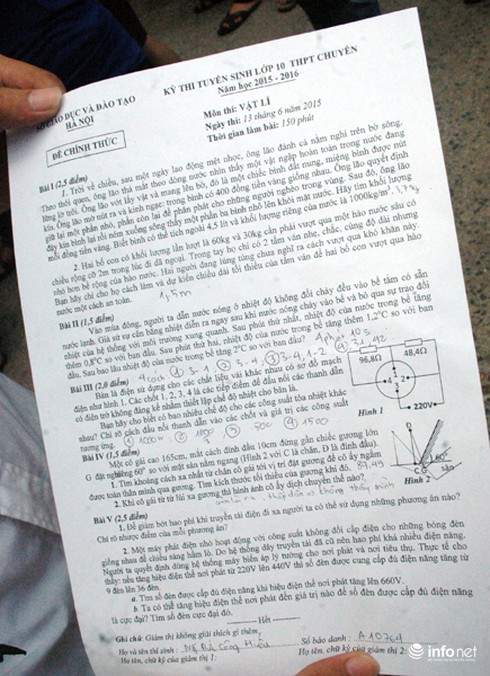 SỞ GIÁO DỤC VÀ ĐÀO TẠO
HÀ NỘI
ĐỀ CHÍNH THỨC
KỲ THI TUYỂN SINH LỚP 10 THPT CHUYÊN
Năm học 2015 - 2016
Môn thi: VẬT LÍ
Ngày thi: 13 tháng 6 năm 2015
Thời gian làm bài: 150 phút
Bài I (2,5 điểm)
1. Trời về chiều, sau một ngày lao động mệt nhọc, ông lão đánh cá nằm nghỉ trên bờ sông.
Theo thói quen, ông lão thả mắt theo dòng nước nhìn thấy một vật ngập hoàn toàn trong nước đang
lững lờ trôi. Ông lão vớt lấy vật và mang lên bờ, đó là một chiếc bình đất nung, miệng bình được nút
kín. Ông lão mở nút ra và kinh ngạc: trong bình có 400 đồng tiền vàng giống nhau. Ông lão quyết định
giữ lại một phần nhỏ, phần còn lại để phân phát cho những người nghèo trong vùng. Sau đó, ông lão
đậy kín bình lại rồi ném xuống sông thấy một phần ba bình nhô lên khỏi mặt nước. Hãy tìm khối lượng
mỗi đồng tiền vàng. Biết bình có thể tích ngoài 4,5 lít và khối lượng riêng của nước là 1000kg/m³.
2. Hai bố con có khối lượng lần lượt là 60kg và 30kg cần phải vượt qua một hào nước sâu có
chiều rộng cỡ 2m trong lúc đi dã ngoại. Trong tay họ chỉ có 2 tấm ván nhẹ, chắc, cùng độ dài nhưng
nhỏ hơn bề rộng của hào nước. Hai người đang lúng túng chưa nghĩ ra cách vượt qua khó khăn này.
Bạn hãy chỉ cho họ cách làm và dự kiến chiều dài tối thiểu của tấm ván để hai bố con vượt qua hào
nước một cách an toàn.
1,5m
Bài II (1,5 điểm)
Vào mùa đông, người ta dẫn nước nóng ở nhiệt độ không đổi chảy đều vào bể tắm có sẵn
nước lạnh. Giả sử sự cân bằng nhiệt diễn ra ngay sau khi nước nóng chảy vào bể và bỏ qua sự trao đổi
nhiệt của hệ thống với môi trường xung quanh. Sau phút thứ nhất, nhiệt độ của nước trong bể tăng
thêm 0,8°C so với ban đầu. Sau phút thứ hai, nhiệt độ của nước trong bể tăng thêm 1,2°C so với ban
đầu. Sau bao lâu nhiệt độ của nước trong bể tăng 2°C so với ban đầu?
Bài III (2,0 điểm)
Bàn là điện sử dụng cho các chất liệu vải khác nhau có sơ đồ mạch
điện như hình 1. Các chốt 1, 2, 3, 4 là các tiếp điểm để đấu nối các thanh dẫn
có điện trở không đáng kể nhằm thiết lập chế độ nhiệt cho bàn là.
Bạn hãy cho biết có bao nhiêu chế độ cho các công suất tỏa nhiệt khác
nhau? Chỉ rõ cách đấu nối thanh dẫn vào các chốt và giá trị các công suất
tương ứng.
96,8Ω
48,4Ω
1
2
3
4
220V
Hình 1
Bài IV (1,5 điểm)
Một cô gái cao 165cm, mắt cách đỉnh đầu 10cm đứng gần chiếc gương lớn
G đặt nghiêng 60° so với mặt sàn nằm ngang (Hình 2 với C là chân, Đ là đỉnh đầu).
1. Tìm khoảng cách xa nhất từ chân cô gái tới vị trí đặt gương để cô ấy ngắm
được toàn thân mình qua gương. Tìm kích thước tối thiểu của gương khi đó.
2. Khi cô gái từ từ lùi xa gương thì hình ảnh cô ấy dịch chuyển thế nào?
Đ
60°
C
Hình 2
Bài V (2,5 điểm)
1. Để giảm bớt hao phí khi truyền tải điện đi xa người ta có thể sử dụng những phương án nào?
Chỉ rõ nhược điểm của mỗi phương án?
2. Một máy phát điện nhỏ hoạt động với công suất không đổi cấp điện cho những bóng đèn
giống nhau để chiếu sáng hầm lò. Do hệ thống dây truyền tải đã cũ nên hao phí khá nhiều điện năng.
Người ta quyết định dùng hệ thống máy biến áp lý tưởng cho nơi phát và nơi tiêu thụ. Thực tế cho
thấy: nếu tăng hiệu điện thế nơi phát từ 220V lên 440V thì số đèn được cung cấp đủ điện năng tăng từ
9 đèn lên 36 đèn.
a. Tìm số đèn được cấp đủ điện năng khi hiệu điện thế nơi phát tăng lên 660V.
b. Ta có thể tăng hiệu điện thế nơi phát đến giá trị nào để số đèn được cấp đủ điện năng
là cực đại? Tìm số đèn cực đại đó.
Hết
Ghi chú: Giám thị không giải thích gì thêm.
Họ và tên thí sinh:
Số báo danh: A10764
Họ tên, chữ ký của giám thị 1:
Họ tên, chữ ký của giám thị 2:
infonet